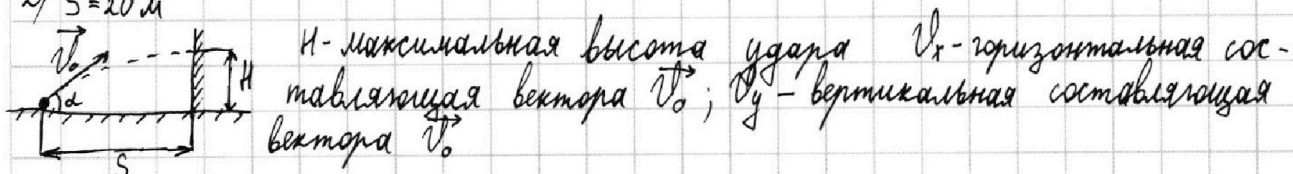 2) S=20 м
H - максимальная высота удара Vx - горизонтальная сос-
тавляющая вектора V₀; Vy - вертикальная составляющая
вектора V₀
V₀
α
H
S